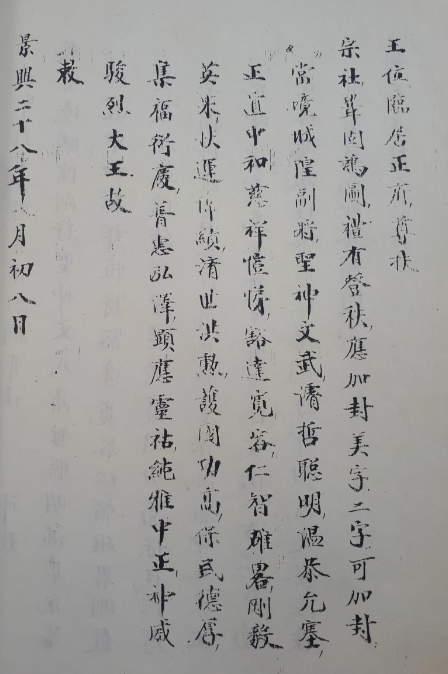 王位臨居正府尊扶
宗社鞏固鴻圖禮有登秩應加封美字二字可加封
當境城隍副將聖神文武濬哲聰明溫恭允塞
正直中和慈祥愷悌豁達寬容仁智雄畧剛毅
英采扶運偉績清世洪勲護國功高保民德厚
集福衍慶普惠弘澤顯應靈祜純雅中正神威
駿烈大王故
敕
景興二十八年八月初八日